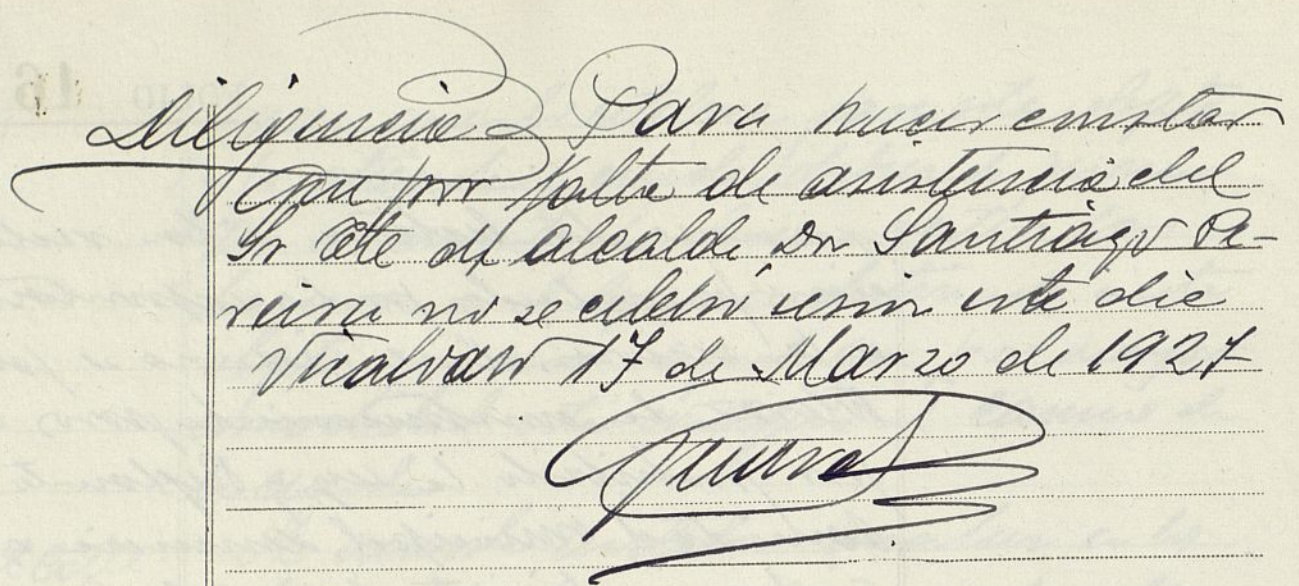 Diligencia Para hacer constar
que por falta de asistencia del
Sr Tte de Alcalde Dn Santiago Pe-
reira no se celebró sesión este dia
Vicalvaro 17 de Marzo de 1927